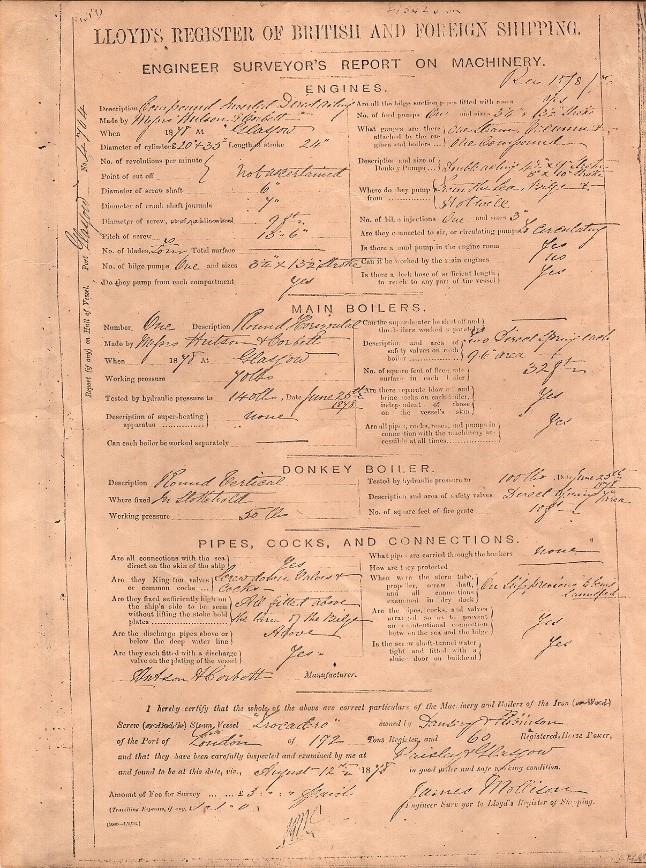 LLOYD'S REGISTER OF BRITISH AND FOREIGN SHIPPING.
ENGINEER SURVEYOR'S REPORT ON MACHINERY.
Rec 15/8/
ENGINES.
Description Compound Inverted Direct acting
Made by Messrs Hutson & Corbett
When 1878 At Glasgow
Diameter of cylinders 20" & 35" Length of stroke 24"
No. of revolutions per minute
Point of cut off
not ascertained
Diameter of screw shaft 6"
Diameter of crank shaft journals 7"
Diameter of screw, 9ft
Pitch of screw 13' 6"
No. of blades four Total surface
No. of bilge pumps One and sizes 3¼" x 13½" Stroke
Do they pump from each compartment Yes
Are all the bilge suction pipes fitted with roses Yes
No. of feed pumps One and sizes 3¼" x 13½" Stroke
What gauges are there attached to the engines and boilers one Steam, one Vacuum & One Compound
Description and size of Donkey Pumps Double acting
Where do they pump from From the Sea, Bilge & Hotwell
No. of bilge injections One and sizes 3"
Are they connected to air, or circulating pumps To Circulating
Is there a hand pump in the engine room Yes
Can it be worked by the main engines no
Is there a deck hose of sufficient length to reach to any part of the vessel Yes
Port Glasgow No. 4764
Report (if any) on Hull of Vessel.
MAIN BOILERS.
Number, One Description Round Horizontal
Made by Messrs Hutson & Corbett
When 1878 At Glasgow
Working pressure 70 lbs
Tested by hydraulic pressure to 140 lbs, Date June 25th 1878
Description of super-heating apparatus none
Can each boiler be worked separately
Can the superheater be shut off and the boilers worked separately
Description and area of safety valves on each boiler two Direct Spring each 9.6" area
No. of square feet of fire grate surface in each boiler 32 ft
Are there separate blow off and brine cocks on each boiler, independent of those on the vessel's skin Yes
Are all pipes, cocks, roses, and pumps in connection with the machinery accessible at all times Yes
DONKEY BOILER.
Description Round Vertical
Where fixed In Stokehold
Working pressure 50 lbs
Tested by hydraulic pressure to 100 lbs, Date June 25th 1878
Description and area of safety valves Direct Spring area
No. of square feet of fire grate
PIPES, COCKS, AND CONNECTIONS.
Are all connections with the sea direct on the skin of the ship Yes
Are they Kingston valves or common cocks Screw down Valves & Cocks
Are they fixed sufficiently high on the ship's side to be seen without lifting the stoke hold plates All fitted above the turn of the Bilge
Are the discharge pipes above or below the deep water line Above
Are they each fitted with a discharge valve on the plating of the vessel Yes
What pipes are carried through the bunkers none
How are they protected
When were the stern tube, propeller, screw shaft, and all connections examined in dry dock On Slip previous to being launched
Are the pipes, cocks, and valves arranged so as to prevent an unintentional connection between the sea and the bilge Yes
Is the screw shaft-tunnel water tight and fitted with a sluice door on bulkhead Yes
Hutson & Corbett Manufacturer.
I hereby certify that the whole of the above are correct particulars of the Machinery and Boilers of the Iron (or Wood)
Screw (or Paddle) Steam Vessel "Trocadero" owned by Dansey & Robinson
of the Port of London of 172 Tons Register, and 60 Registered, Horse Power,
and that they have been carefully inspected and examined by me at Paisley & Glasgow
and found to be at this date, viz., August 12th 1878 in good order and safe working condition.
Amount of Fee for Survey £3
James Mollison
Engineer Surveyor to Lloyd's Register of Shipping.
(Travelling Expenses, if any,